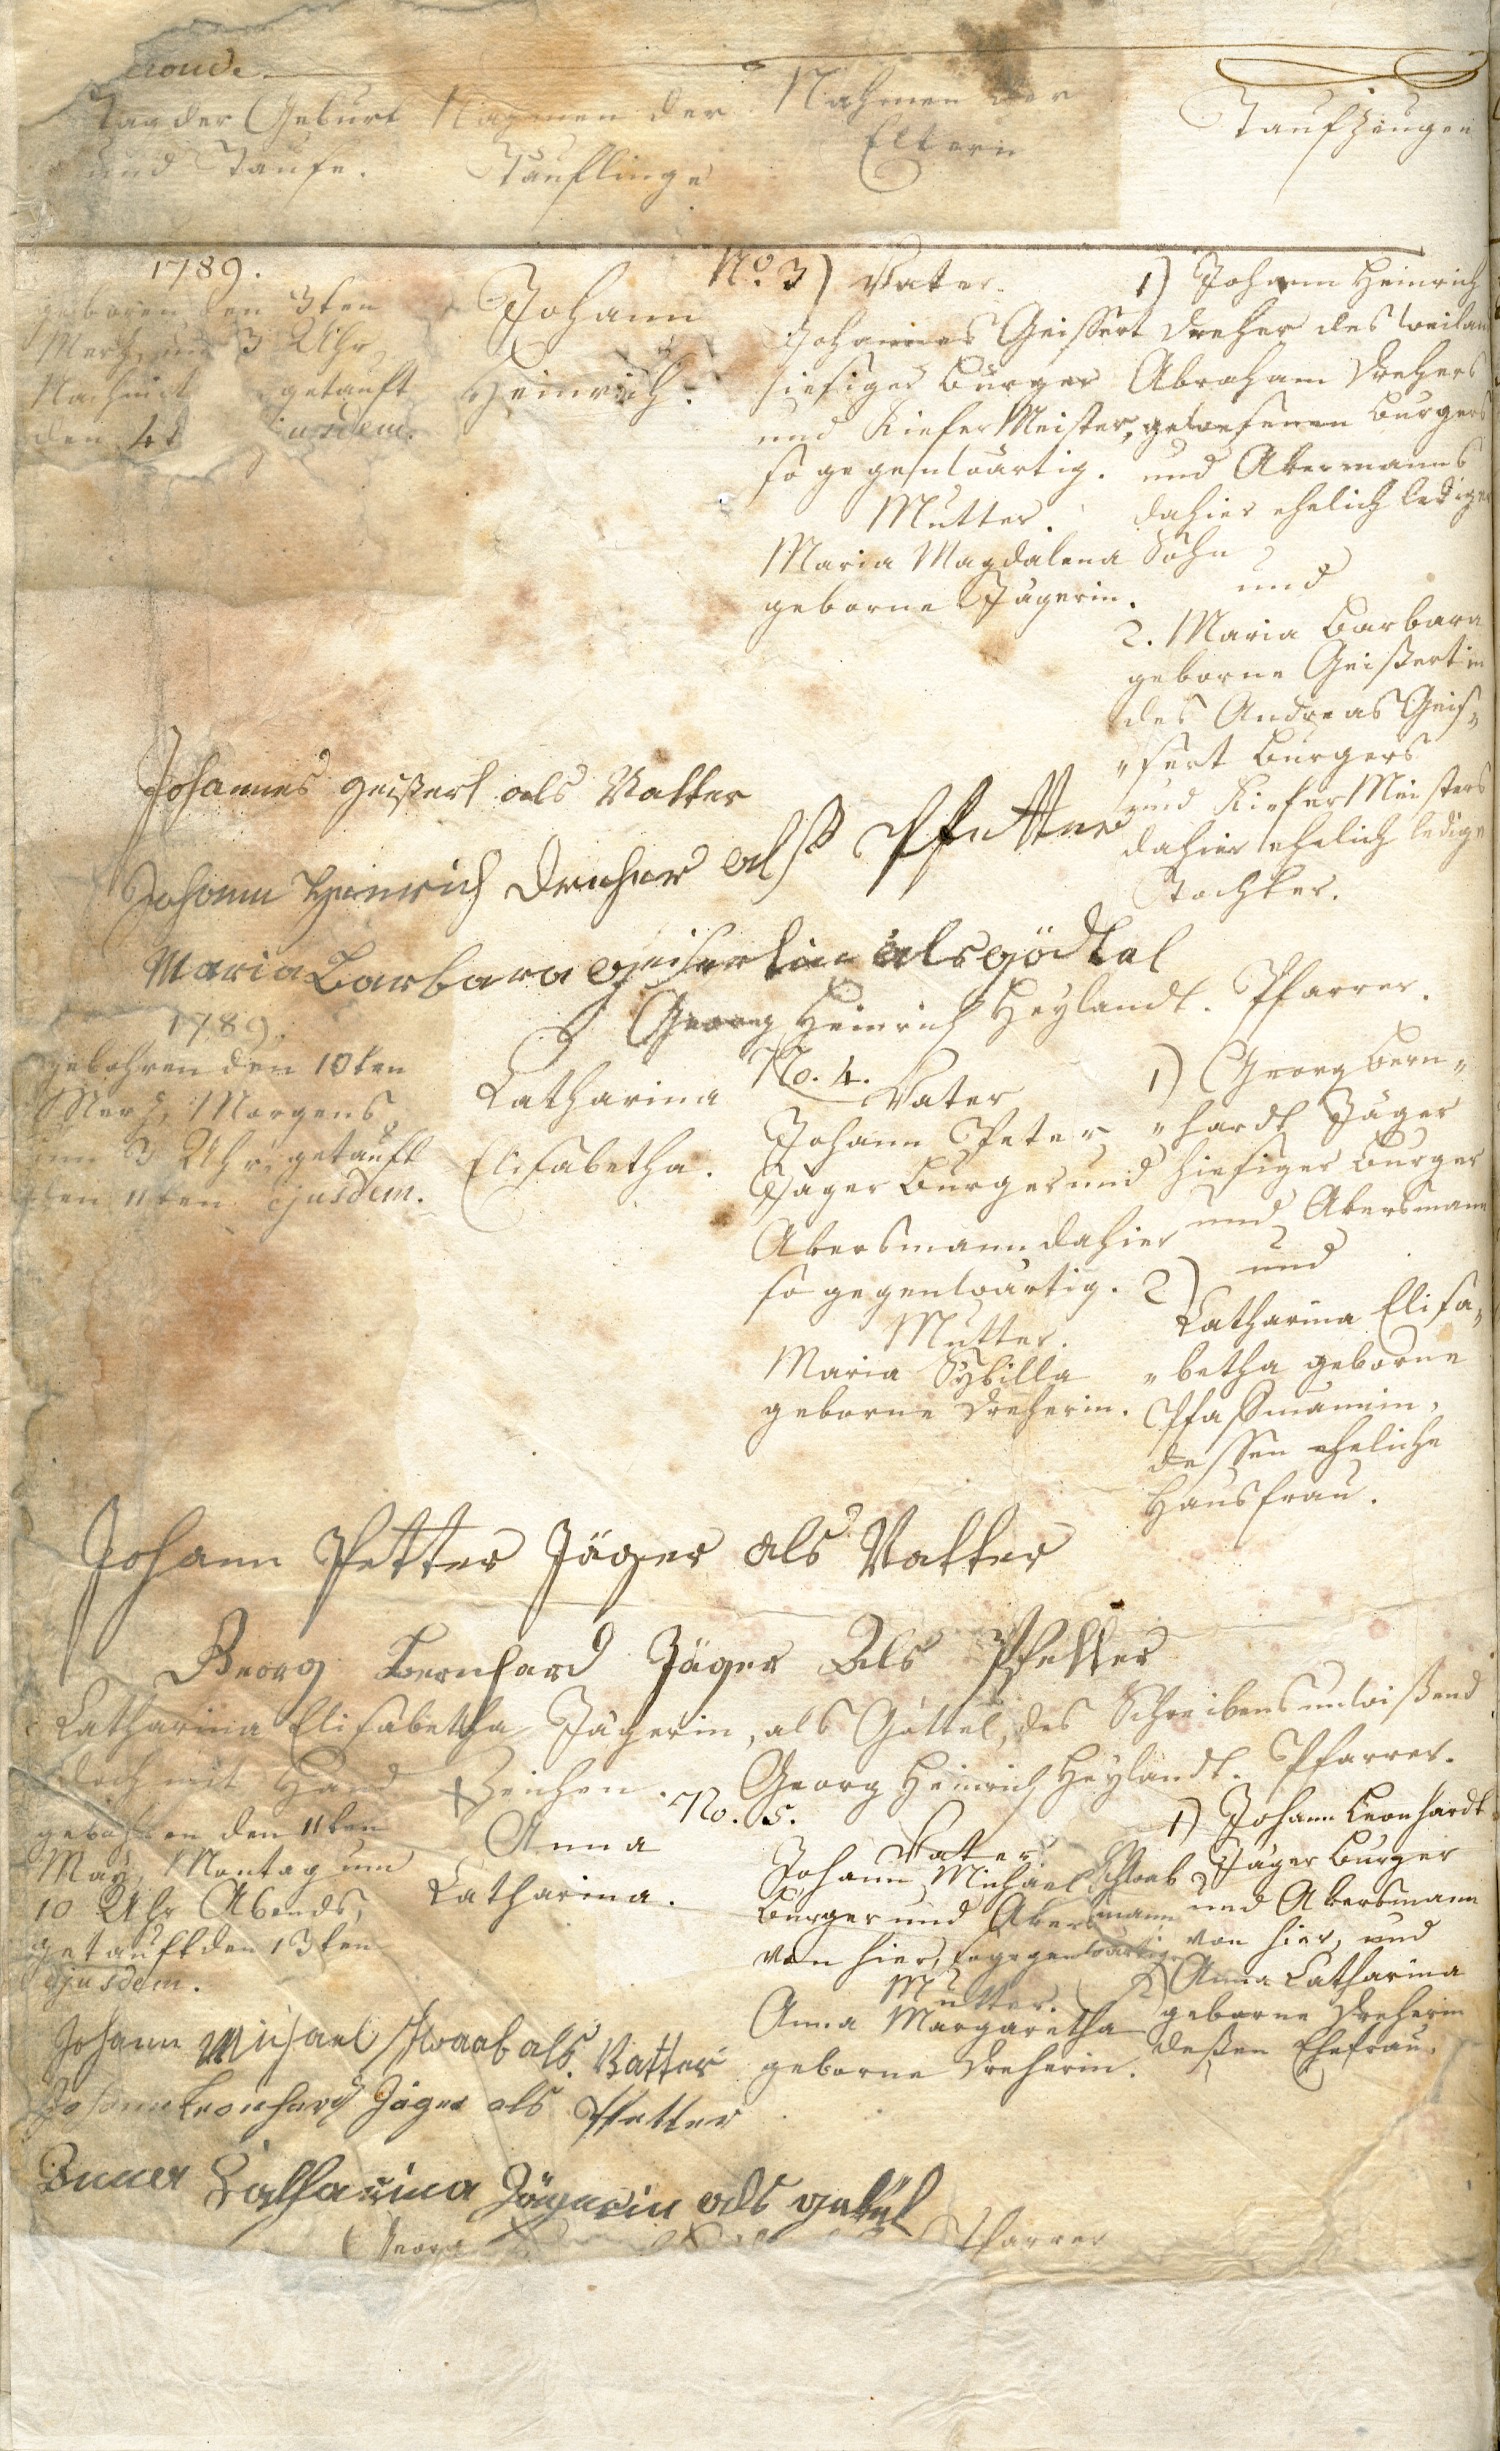 Tag der Geburt
und Taufe.
Nahmen der
Täuflinge
Nahmen der
Eltern
Taufzeugen
1789.
geboren den 3ten
Mertz um 3 Uhr
Nachmit getauft
den 4t ejusdem.
Johann
Heinrich.
No. 3) Vater.
Johannes Geissert
hiesiger Burger
und Kiefer Meister,
so gegenwärtig.
Mutter.
Maria Magdalena
geborne Jägerin.
1) Johann Heinrich
Dreher des weilan
Abraham Drehers
gewesenen Burgers
und Akermanns
dahier ehelich lediger
Sohn
und
2. Maria Barbara
geborne Geißertin
des Andreas Geis„
„sert Burgers
und Kiefer Meisters
dahier ehelich ledige
Tochter.
Johannes geißert als Vatter
Johann Heinrich Dreher alß Pfetter
Maria Barbara geisertin als gödtel
Georg Heinrich Heylandt. Pfarrer.
1789.
gebohren den 10ten
Merz, Morgens
um 3 Uhr, getauft
den 11ten ejusdem.
Catharina
Elisabetha.
No. 4.
Vater
Johann Peter
Jäger Burger und
Akersmann dahier
so gegenwärtig.
Mutter.
Maria Sybilla
geborne Dreherin.
1) Georg Bern„
„hardt Jäger
hiesiger Burger
und Akersmann
und
2)
Catharina Elisa„
„betha geborne
Pfassmännin,
dessen eheliche
Hausfrau.
Johann Petter Jäger als Vatter
Georg Bernhard Jäger Als Pfetter
Catharina Elisabetha Jägerin, als Göttel, des Schreibens unwißend
doch mit Hand + Zeichen.
Georg Heinrich Heylandt. Pfarrer.
gebohren den 11ten
May, Montag um
10 Uhr Abends,
getauft den 13ten
ejusdem.
Anna
Catharina.
No. 5.
Vater
Johann Michael Schwab
Burger und Akersmann
von hier, so gegenwärtig.
Mutter.
Anna Margaretha
geborne Dreherin.
1) Johann Leonhardt
Jäger Burger
und Akersmann
von hier, und
2) Anna Catharina
geborne Dreherin
deßen Ehefrau.
Johann Michael Schwab als Vatter
Johann Leonhard Jäger als Pfetter
Anna Catharina Jägerin als
Georg Pfarrer